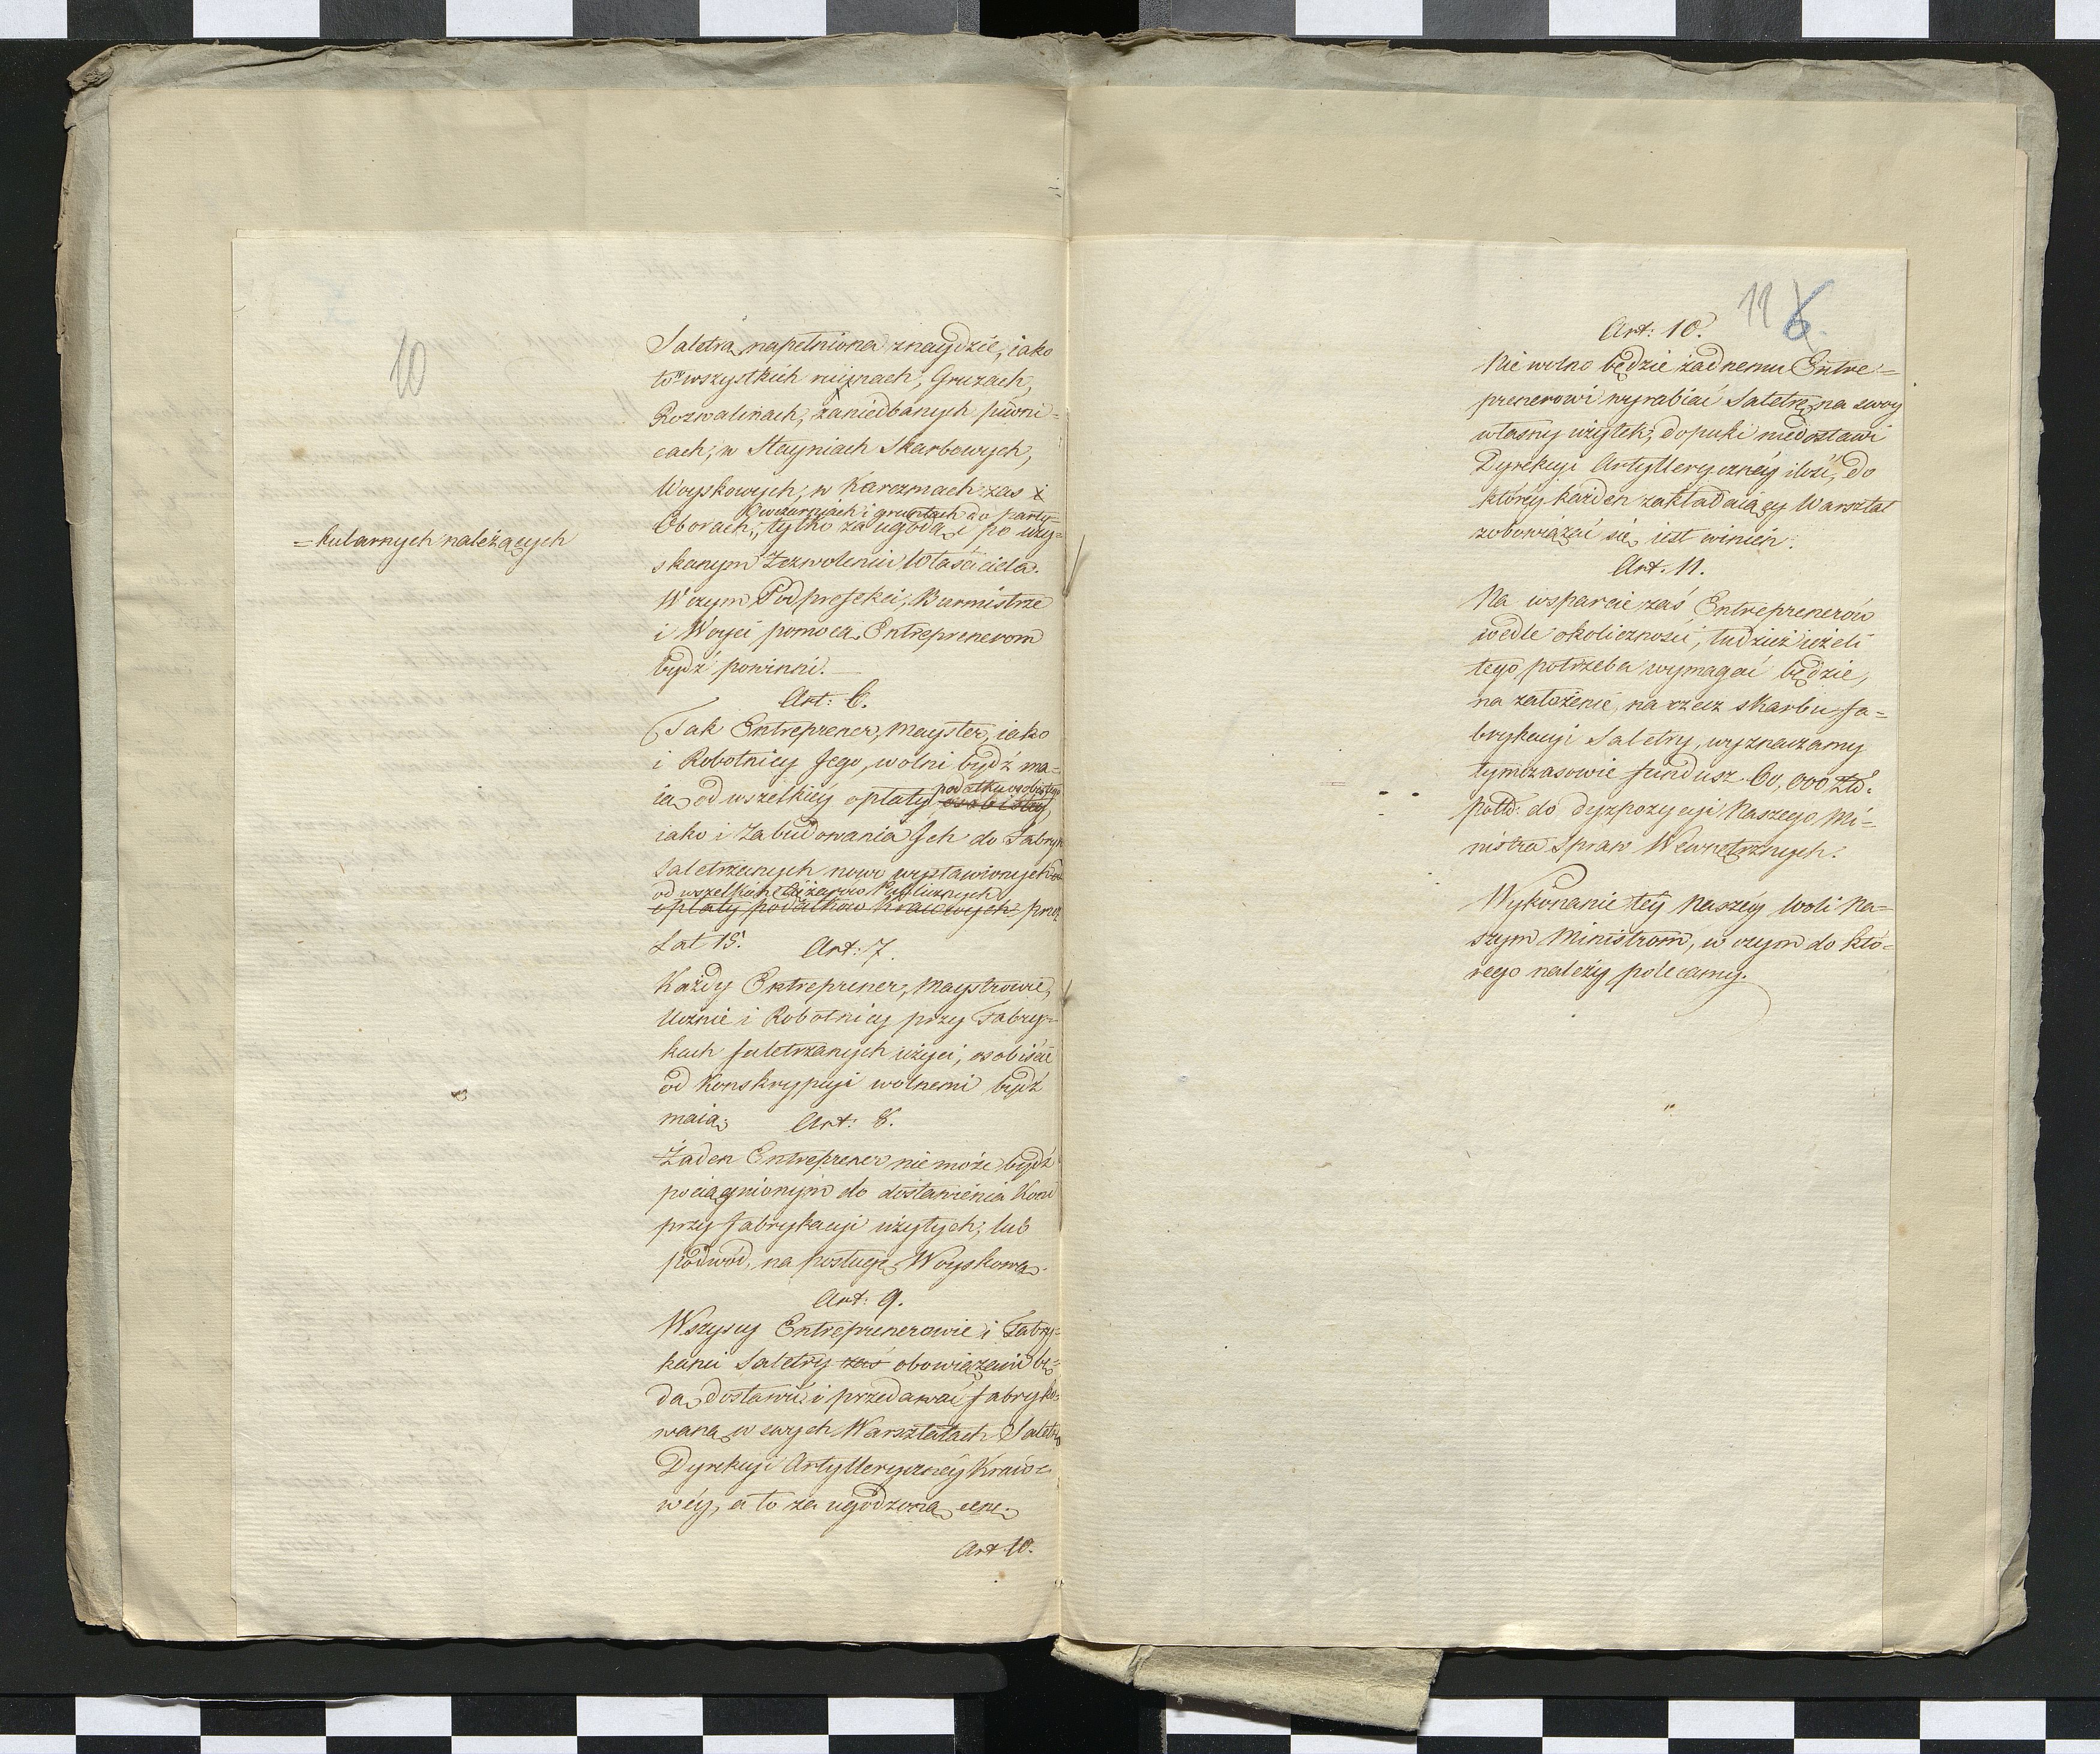 10
Saletrą napełniona znaydzie, iako
to w wszystkich ruinach, Gruzach,
Rozwalinach, zaniedbanych piwni=
cach, w Stayniach Skarbowych,
Woyskowych, w Karczmach zas i
Owczarniach i gruntach do party=
=kularnych należących
Oborach, tylko za ugodą i po uzy=
skanym Zezwoleniu Właściciela.
W czym Podprefekci, Burmistrze
i Woyci pomocą Entreprenerom
bydź powinni.
Art: 6.
Tak Entreprener, Mayster, iako
i Robotnicy Jego, wolni bydź ma=
ią od wszelkiéy opłaty podatku osobistego
osobistey
iako i Zabudowania Jch do Fabryk
Saletrzanych nowo wystawionych
od wszelkich Ciężarów Publicznych
opłaty podatków Kraiowych przez
Lat 15.
Art: 7.
Każdy Entreprener, Maystrowie,
Ucznie i Robotnicy przy Fabry=
kach saletrzanych użyci, osobiście
od Konskrypcyi wolnemi bydź
maią.
Art: 8.
Żaden Entreprener nie może bydź
pociągnionym do dostawienia Koni
przy fabrykacyi użytych, lub
podwód, na posługę Woyskową.
Art: 9.
Wszyscy Entreprenerowie i Fabry=
kanci Saletry zaś obowiązani bę=
dą dostawić i przedawać fabryko=
waną w swych Warsztatach Saletrę
Dyrekcyi Artylleryczneéy Kraio=
wéy, a to za ugodzoną cenę.
Art 10.
11 6
Art: 10.
Nie wolno będzie żadnemu Entre=
prenerowi wyrabiać Saletrę na swoy
własny użytek, dopuki niedostawi
Dyrekcyi Artylleryczney ilość, do
któréy każden zakładaiący Warsztat
zobowiązać się iest winien.
Art. 11.
Na wsparcie zaś Entreprenerów
wedle okoliczności, tudzież ieżeli
tego potrzeba wymagać będzie,
na założenie, na rzecz skarbu, fa=
brykacyi Saletry, wyznaczamy
tymczasowie fundusz 60,000 Złł.
polł: do dyzpozycyi Naszego Mi=
nistra Spraw Wewnętrznych.
Wykonanie téy Naszéy woli Na=
szym Ministrom, w czym do któ=
rego należy polecamy.